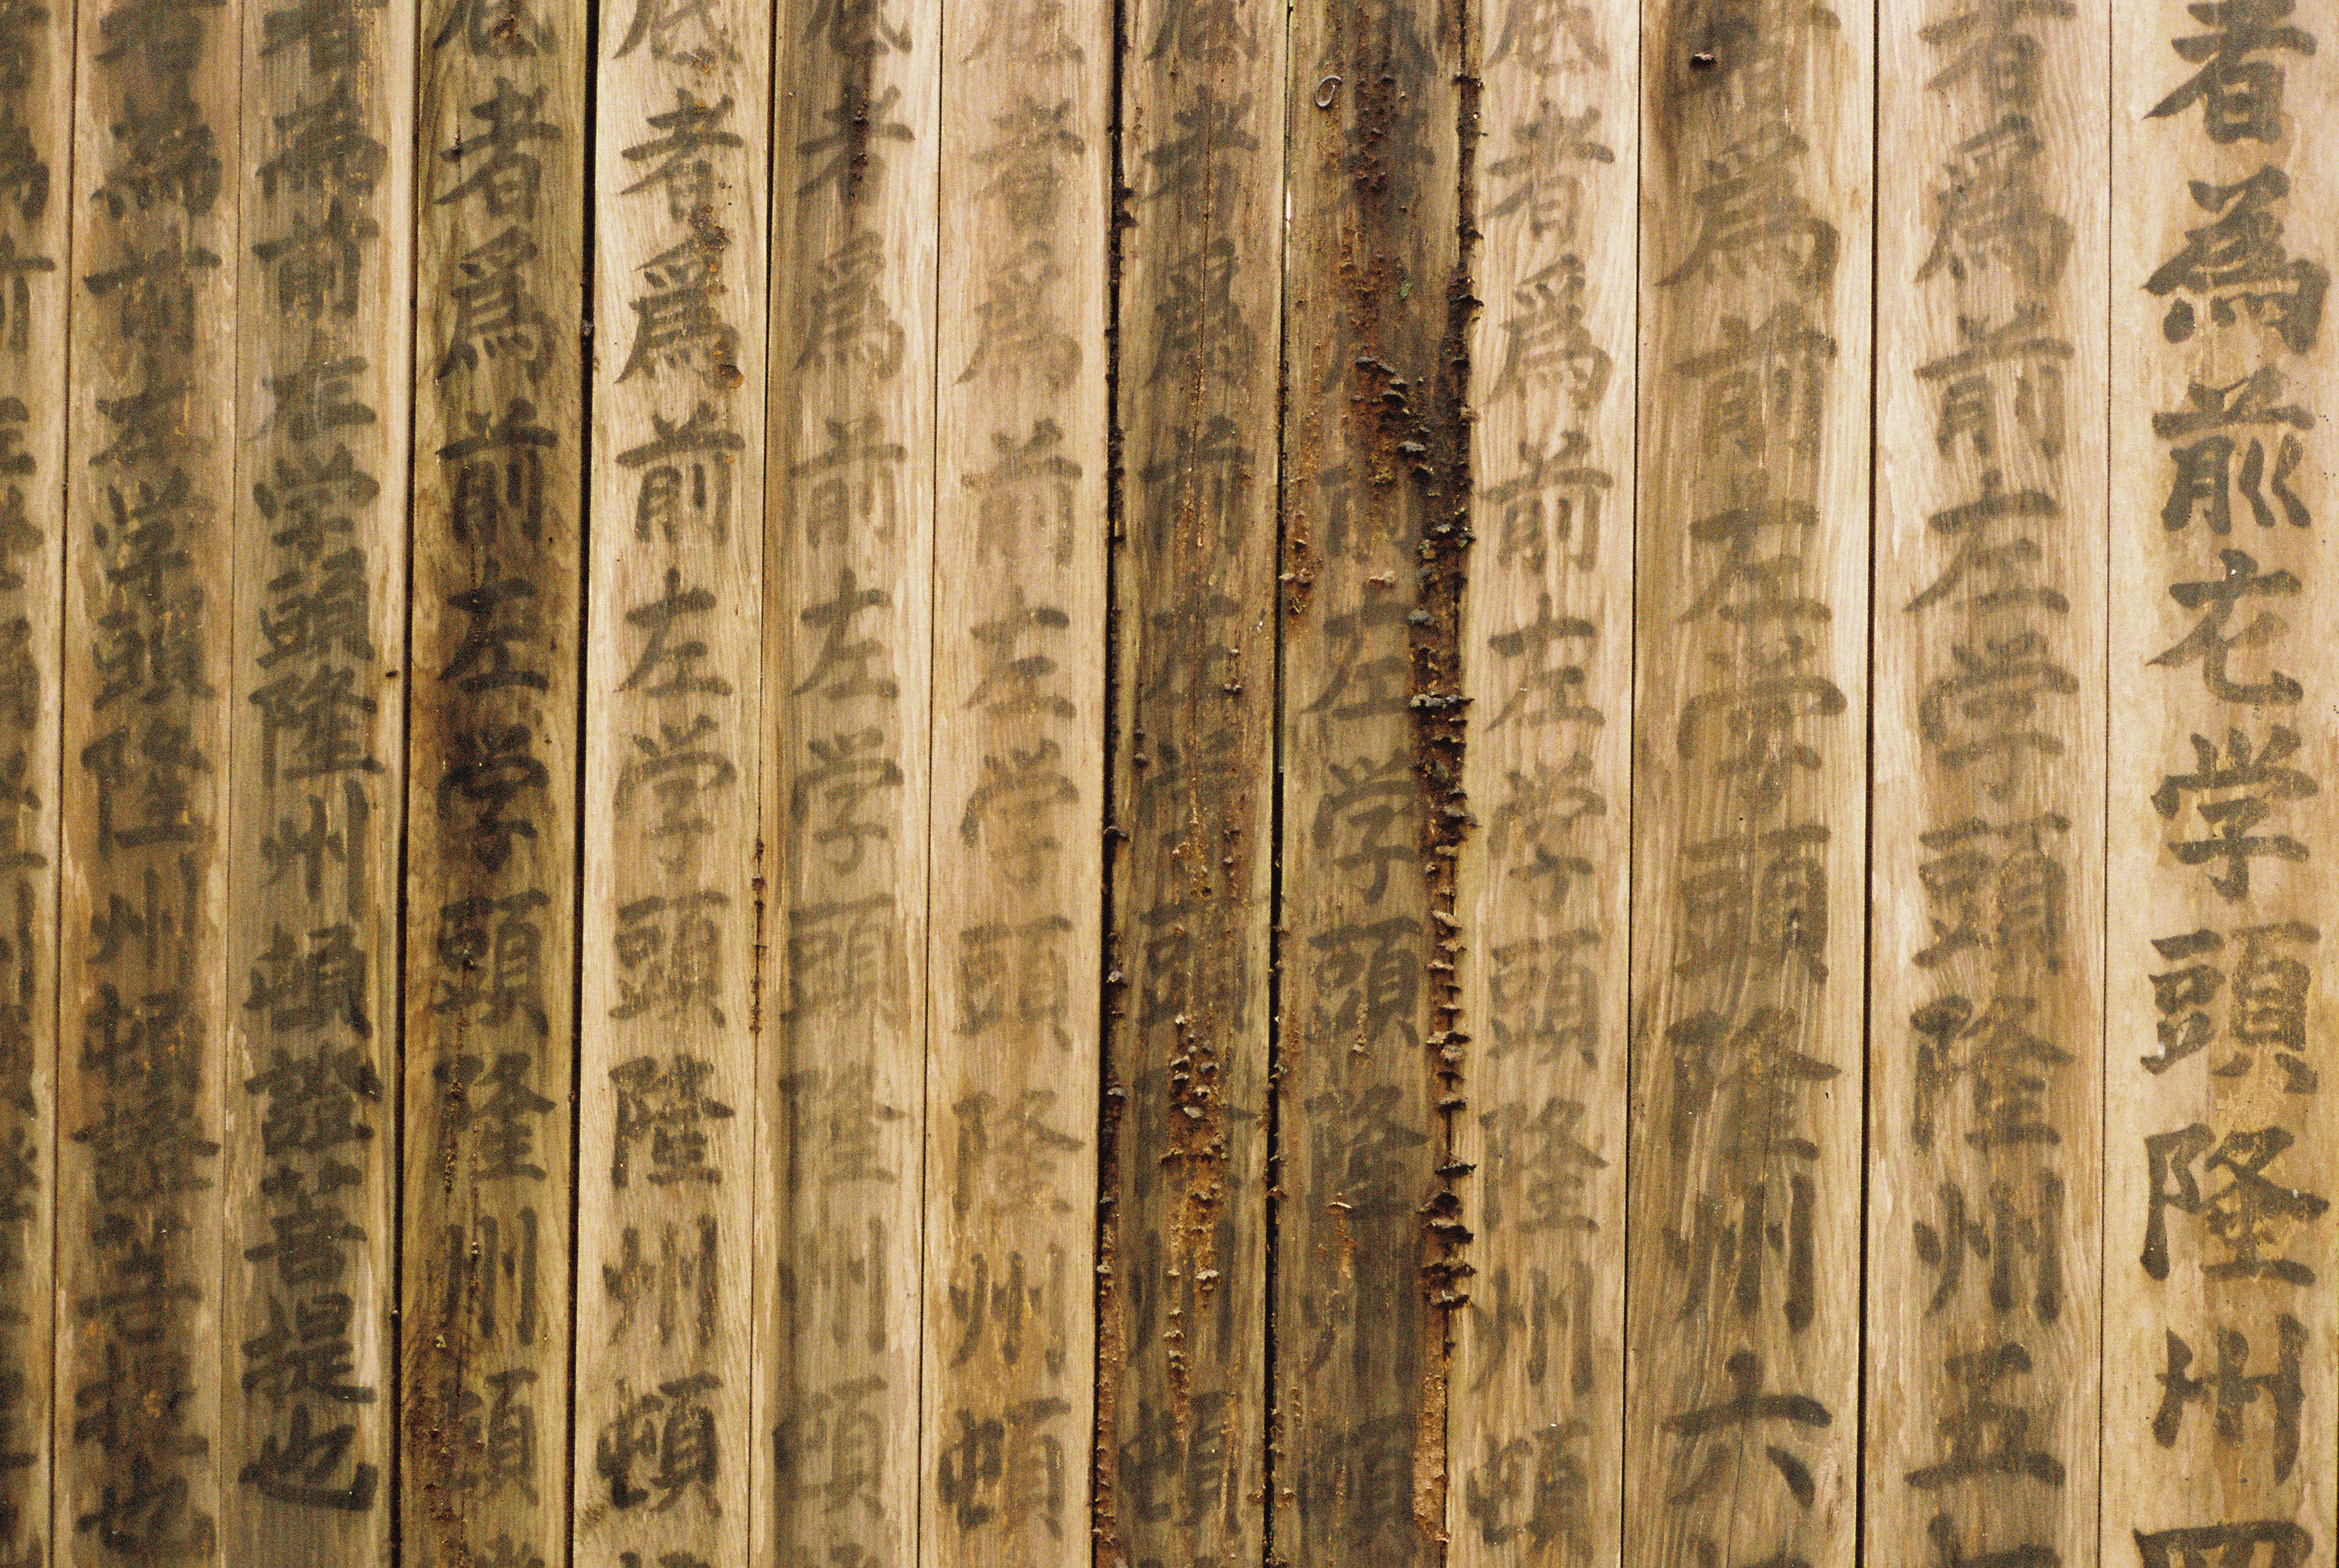 者為前左学頭隆州四
者爲前左学頭隆州五
爲前左学頭隆州六
者爲前左学頭隆州頓
前左学頭隆州頓
者爲前左学頭隆州頓
者爲前左学頭隆州頓
者爲前左学頭隆州頓
者爲前左学頭隆州頓
者爲前左学頭隆州頓
者為前左学頭隆州頓證菩提也
者為前左学頭隆州頓證菩提也